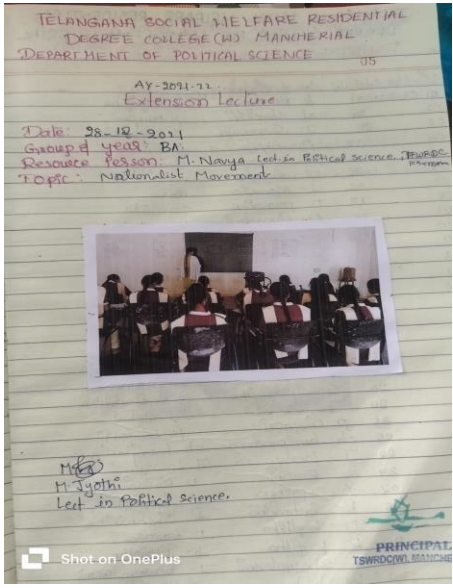 TELANGANA SOCIAL WELFARE RESIDENTIAL
DEGREE COLLEGE (W) MANCHERIAL
DEPARTMENT OF POLITICAL SCIENCE
05
AY-2021-22
Extension Lecture
Date: 28-12-2021
Group & year: BA.
Resource Person: M. Navya Lect in Political science, TSWRDC
Topic: Nationalist Movement
M. Jyothi
Lect in Political Science.
PRINCIPAL
TSWRDC(W), MANCHE
Shot on OnePlus